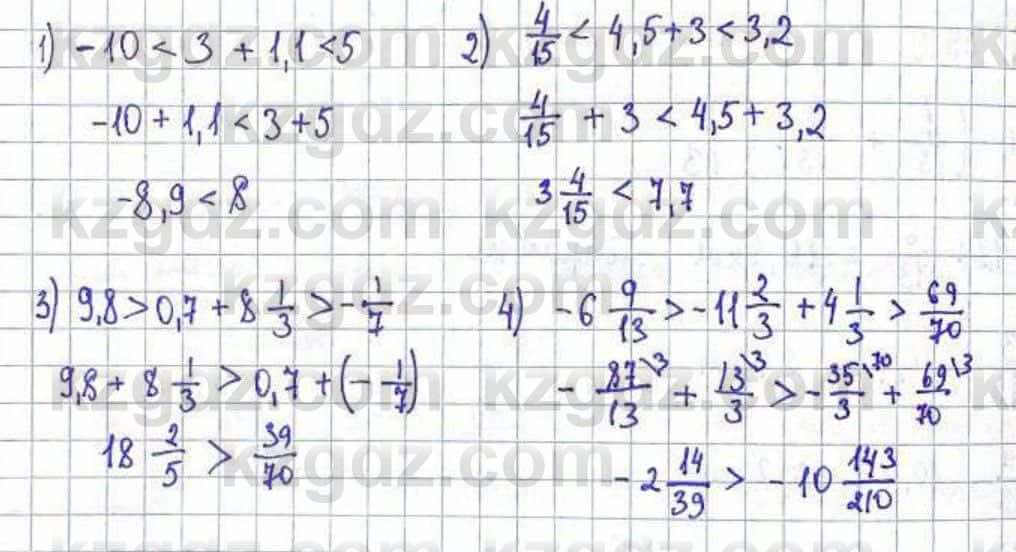 1) -10 < 3 + 1,1 < 5
-10 + 1,1 < 3 + 5
-8,9 < 8
2) 4/15 < 4,5 + 3 < 3,2
4/15 + 3 < 4,5 + 3,2
3 4/15 < 7,7
3) 9,8 > 0,7 + 8 1/3 > - 1/7
9,8 + 8 1/3 > 0,7 + (- 1/7)
18 2/5 > 39/70
4) -6 9/13 > -11 2/3 + 4 1/3 > 69/70
- 87\3/13 + 13\3/3 > - 35\70/3 + 69\3/70
-2 14/39 > -10 143/210
kzgdz.com
kzgdz.com
kzgdz.com
kzgdz.com
kzgdz.com
kzgdz.com